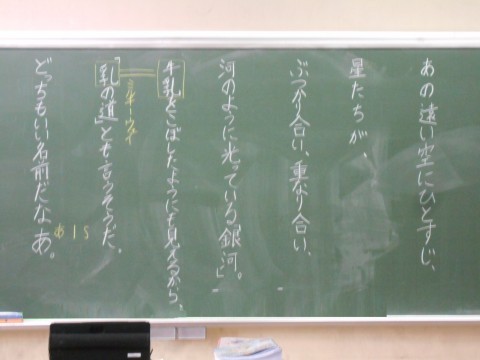 あの遠い空にひとすじ、
星たちが、
ぶつかり合い、重なり合い、
河のように光っている「銀河」。
牛乳をこぼしたようにも見えるから、
ミルキーウェイ
「乳の道」とも言うそうだ。
どっちもいい名前だなあ。